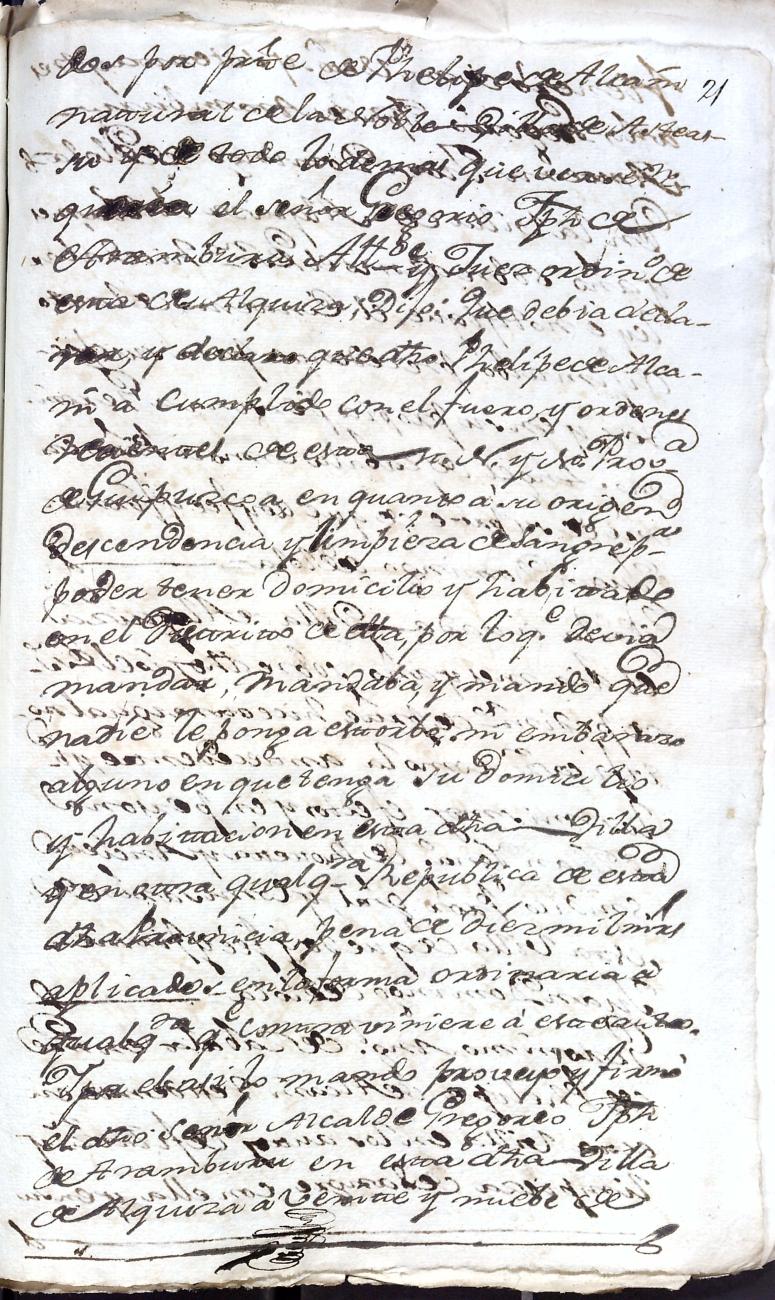 dos por pñte de Phelipe de Alcañi
21
natural de la Noble Villa de Asteas-
su y de todo lo demas que ver
el señor Gregorio Jph de
Aramburu All.de y Juez ordin.o de
esta de Alquiza, Dijo: Que debia decla-
rar, y declaro que dho Phelipe de Alca-
ñi á Cumplido con el fuero, y ordenes
de esta M. N. y M. L. Prov.a
de Guipuzcoa en quanto á su origen
descendencia y limpieza de sangre p.a
poder tener Domicilio y habitado
en el Territorio de ella, por lo q.e devia
mandar, Mandaba, y mando que
nadie le ponga estorbo, ni embarazo
alguno en que tenga su Domicilio
y habitacion en esta dha Villa
y en otra qualq.ra Republica de esta
dha Provincia, pena de diez mil mrs
aplicados en la forma ordinaria a
qualq.ra q. Contraviniere á este auto.
Y por el asi lo mando proveyo y firmó
el dho Señor Alcalde Gregorio Jph
de Aramburu en esta dha Villa
de Alquiza a Veinte y nuebe de